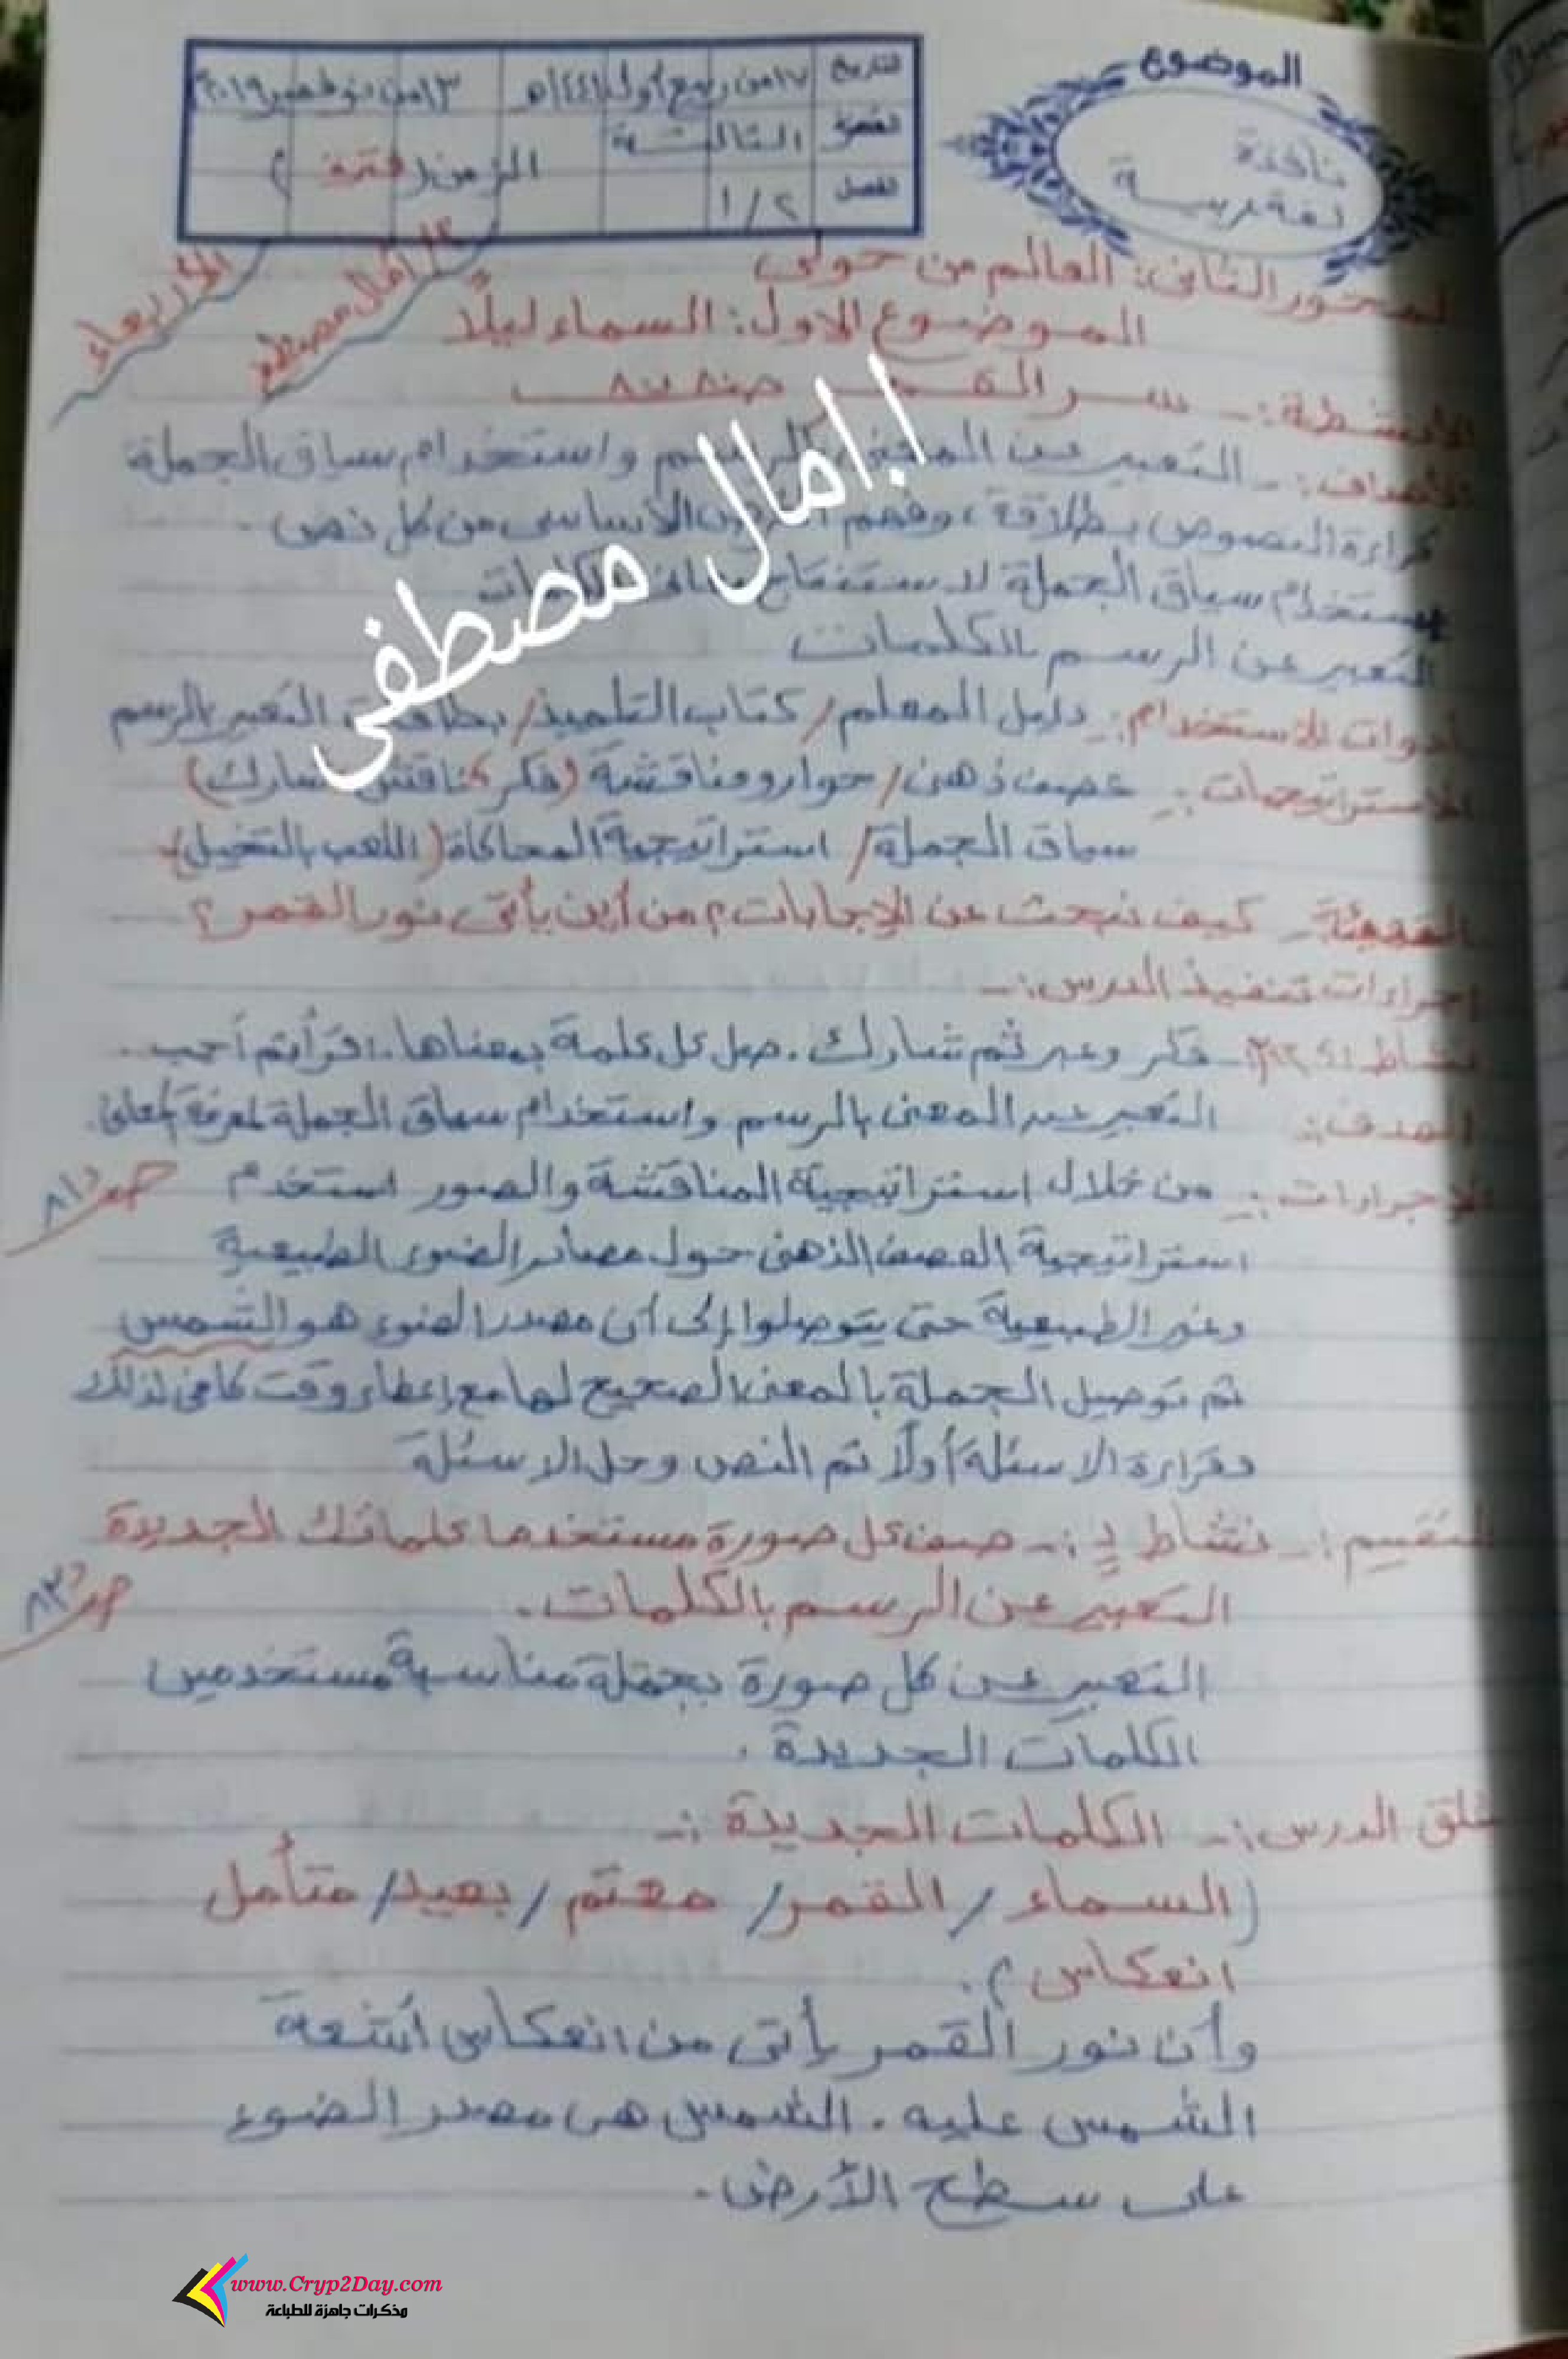 الموضوع
نافذة
لغة عربية
التاريخ ١٧ من ربيع أول ١٤٤١هـ ١٣ من نوفمبر ٢٠١٩
الفترة الثالثة
الفصل ١/٢ الزمن (فترة)
الأربعاء
أ/ آمال مصطفى
المحور الثانى: العالم من حولى
الموضوع الاول: السماء ليلاً
الأنشطة:- سر القمر
الأهداف:- التعبير عن المعنى بالرسم واستخدام سياق الجملة
قراءة النصوص بطلاقة، وفهم الأساسى من كل نص.
استخدام سياق الجملة لاستنتاج الكلمات
التعبير عن الرسم بالكلمات
ا.امال مصطفى
أدوات الاستخدام:- دليل المعلم/ كتاب التلميذ/ بطاقات التعبير بالرسم
الاستراتيجيات:- عصف ذهنى/ حوار ومناقشة (فكر ناقش شارك)
سياق الجملة/ استراتيجية المحاكاة (اللعب بالتخيل)
التهيئة- كيف نبحث عن الإجابات؟ من أين يأتى نور القمر؟
اجراءات تنفيذ الدرس:-
نشاط - فكر وعبر ثم شارك. صل كل كلمة بمعناها. اقرأ ثم أجب.
الهدف:- التعبير عن المعنى بالرسم واستخدام سياق الجملة لمعرفة المعانى.
الاجراءات:- من خلال استراتيجية المناقشة والصور استخدم
صـ ٨١
استراتيجية العصف الذهنى حول مصادر الضوء الطبيعية
وغير الطبيعية حتى يتوصلوا إلى أن مصدر الضوء هو الشمس
ثم توصيل الجملة بالمعنى الصحيح لها مع إعطاء وقت كافى لذلك
وقراءة الاسئلة أولاً ثم النص وحل الاسئلة
التقييم:- نشاط :- صف كل صورة مستخدما كلماتك الجديدة
صـ ٨٣
التعبير عن الرسم بالكلمات.
التعبير عن كل صورة بجملة مناسبة مستخدمين
الكلمات الجديدة.
غلق الدرس:- الكلمات الجديدة:-
(السماء / القمر/ معتم / بعيد/ متأمل
انعكاس).
وأن نور القمر يأتى من انعكاس أشعة
الشمس عليه. الشمس هى مصدر الضوء
على سطح الأرض.
www.Cryp2Day.com
مذكرات جاهزة للطباعة